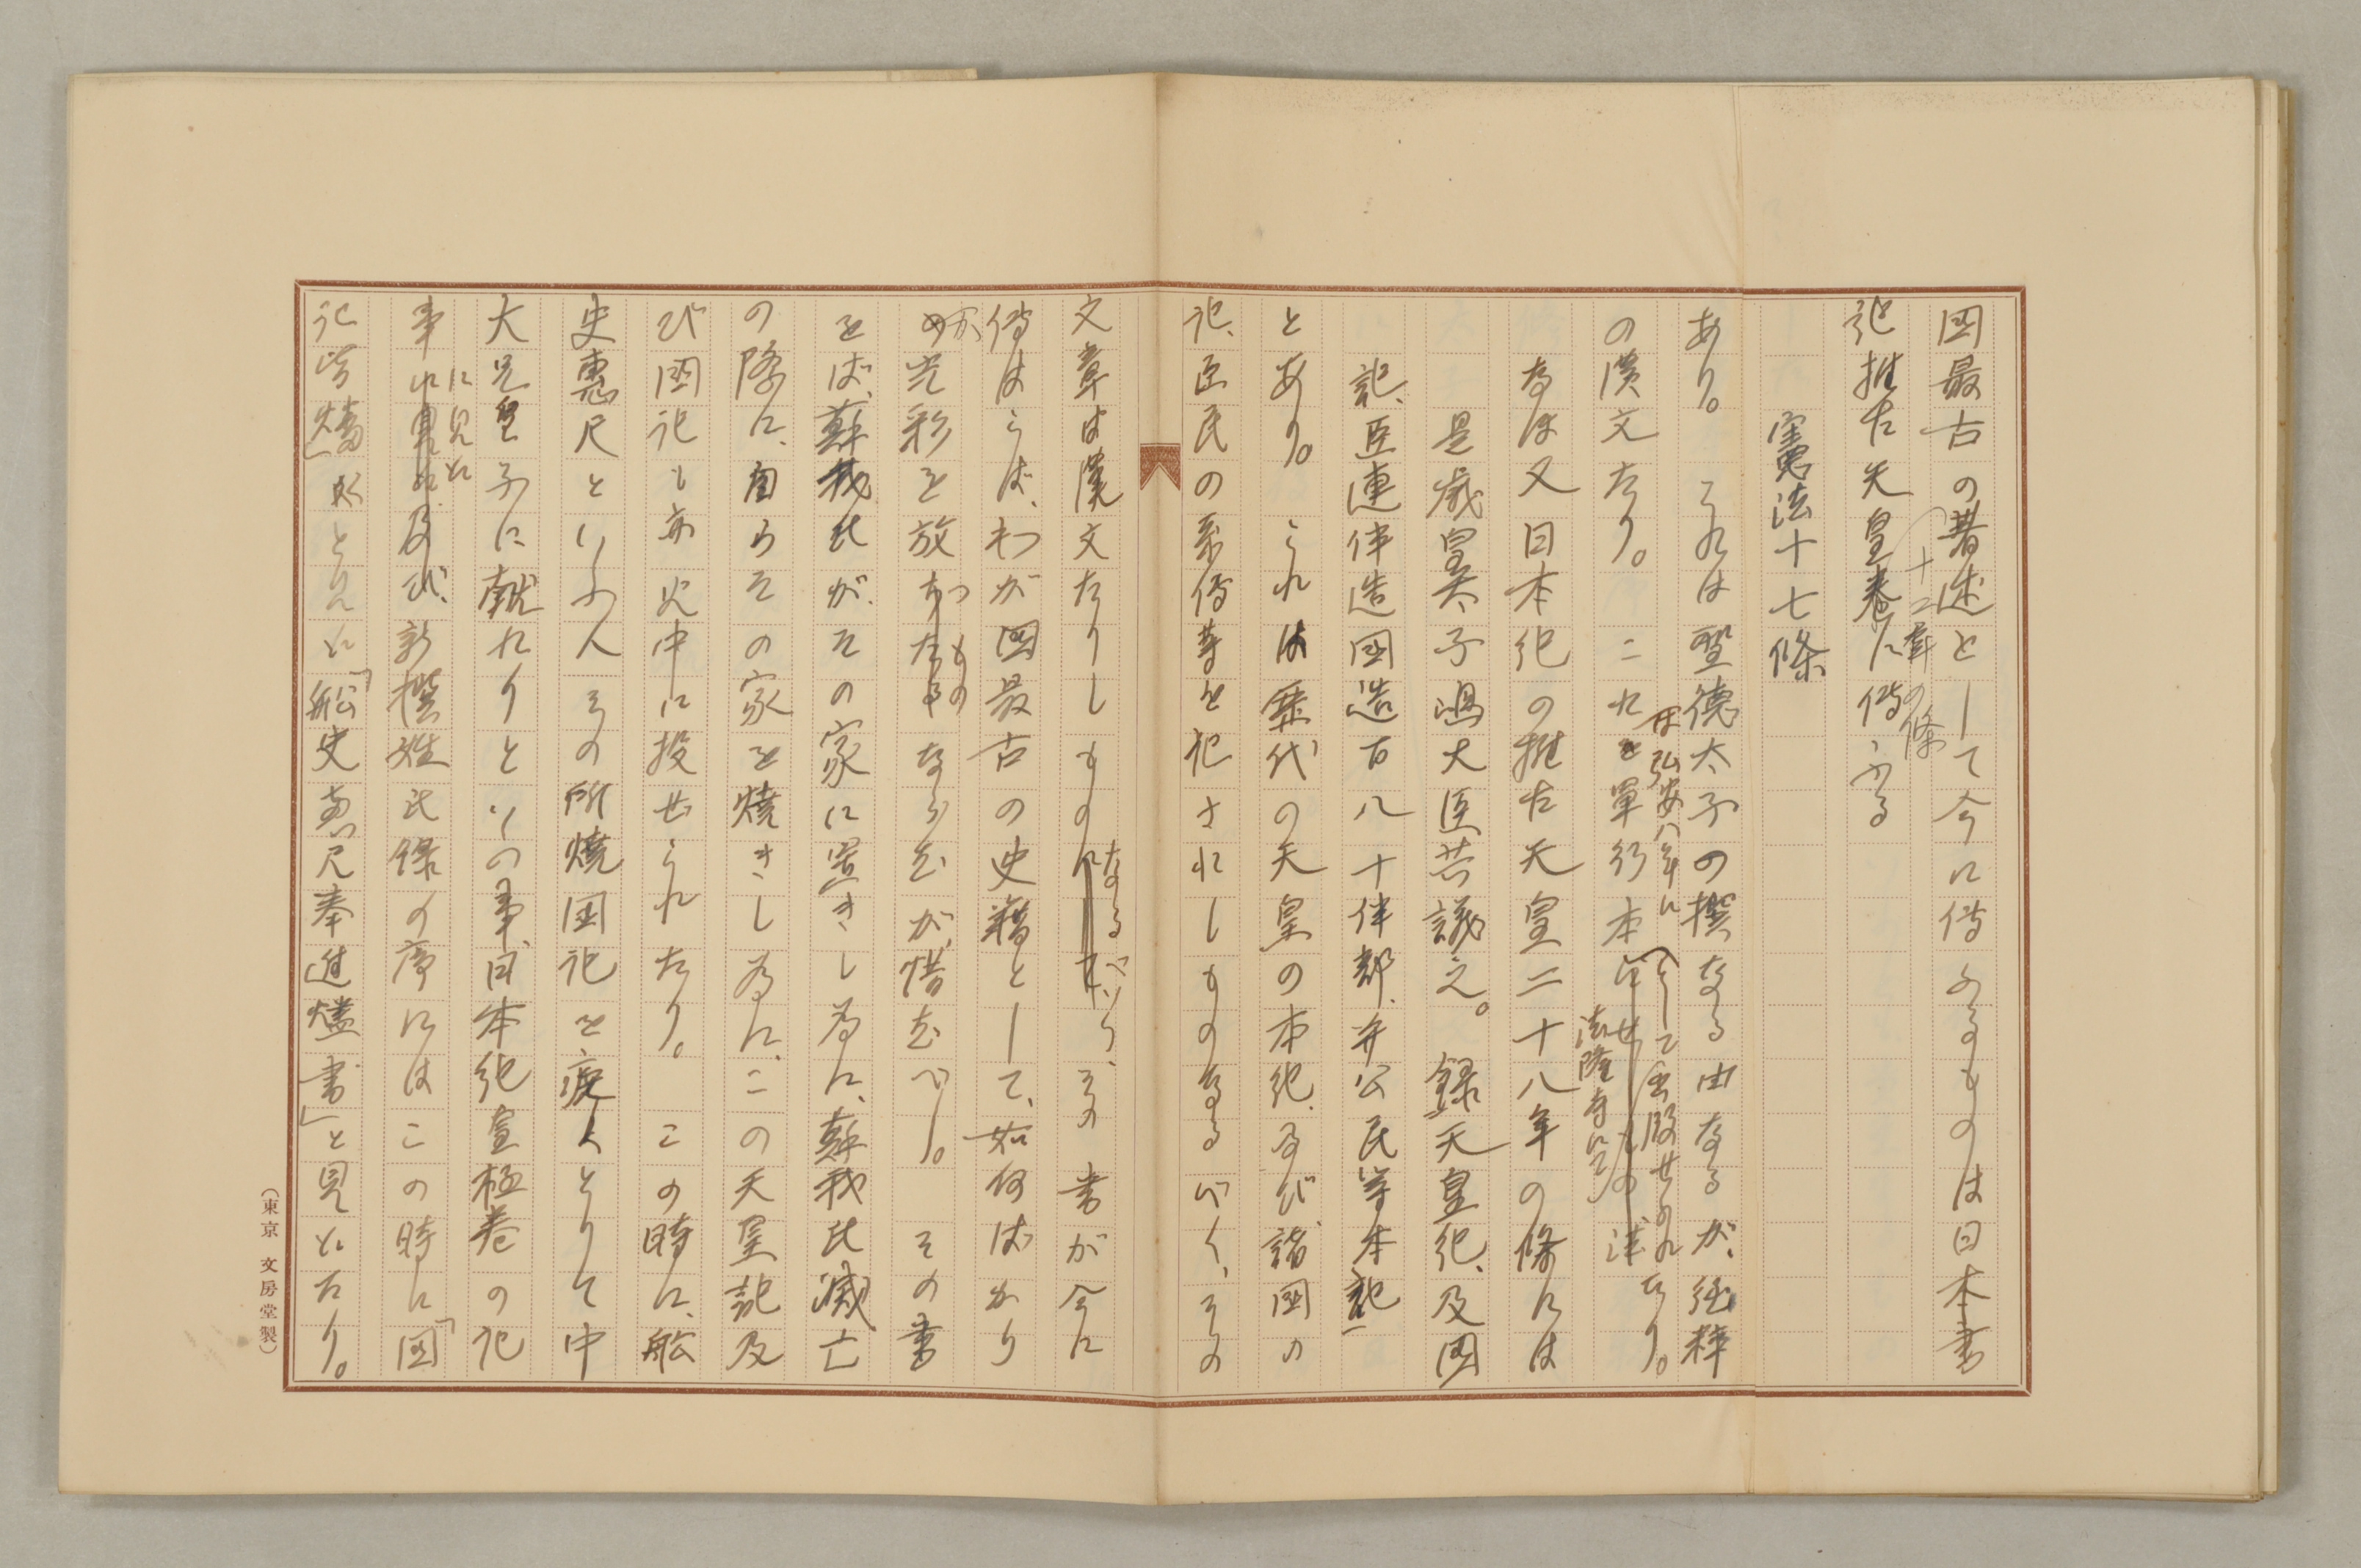 国最古の著述として今に傳はるものは日本書
紀推古天皇巻に傳ふる
十二年の條
憲法十七條
あり。これは聖徳太子の撰なる由なるが、純粋
の漢文なり。これを単行本
は弘安八年に
として出版せられ
法隆寺にて
たり。
なほ又日本紀の推古天皇二十八年の條には
是歳皇太子嶋大臣共議之。録天皇紀、及国
記、臣連伴造國造百八十伴部、并公民等本記
とあり。これは歴代の天皇の本紀、及び諸国の
記、臣民の系傳等を記されしものなるべく、その
文章は漢文たりしもの
なるべく、その書が今に
傳はらば、わが國最古の史籍として、如何ばかり
か光彩を放つ
もの
ならむが、惜むべし。その書
をば、蘇我氏が、その家に置きし為に、蘇我氏滅亡
の際に、自らその家を焼きし為に、この天皇記及
び国記も亦火中に投ぜられたり。この時に、船
史恵尺といふ人その所焼国記を疾くとりて中
大兄皇子に献れりといふ事、日本紀皇極巻の記
事
に見え
及び、新撰姓氏録の序にはこの時に「国
記皆燔」
とりに「船史恵尺奉進燼書」と見えたり。
(東京 文房堂製)